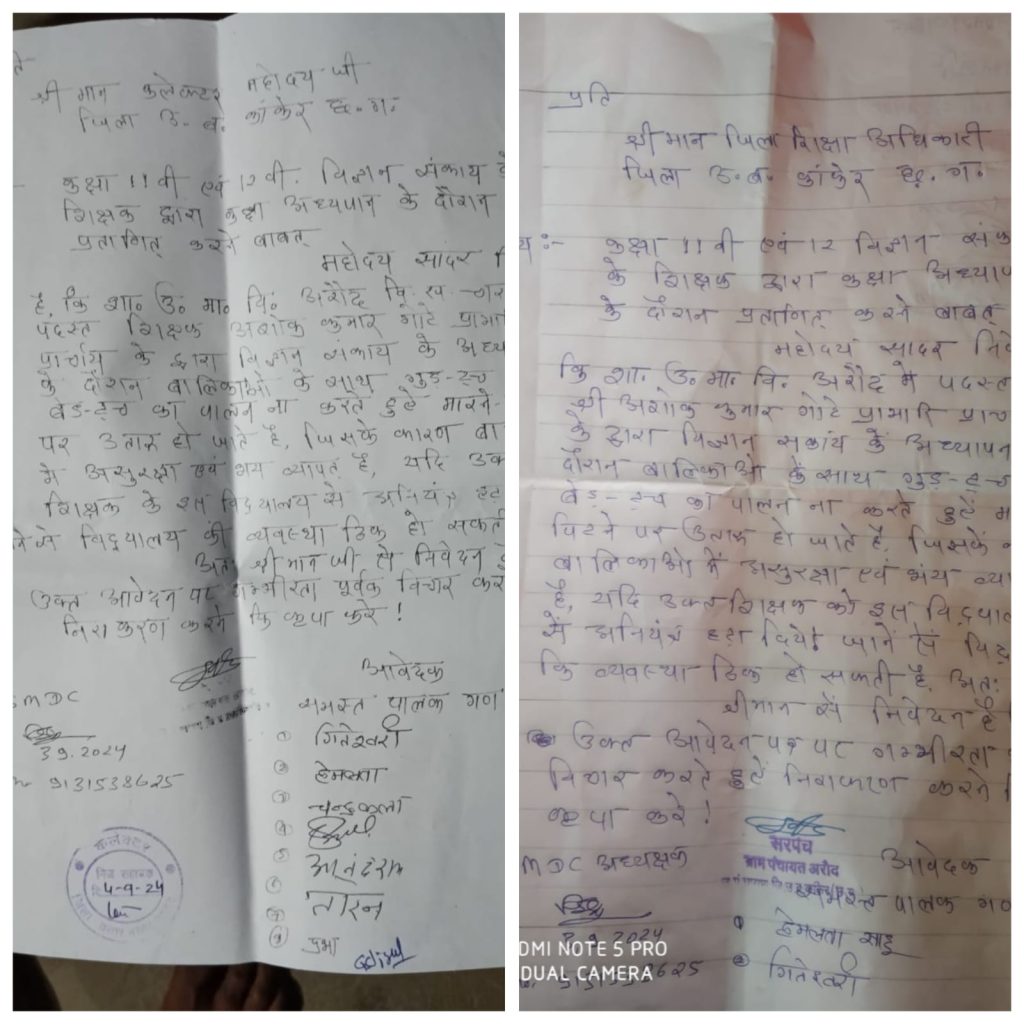 श्री मान कलेक्टर महोदय जी
जिला उ. ब. कांकेर छ. ग.
कक्षा 11 वी एवं 12 वी. विज्ञान संकाय
शिक्षक द्वारा कक्षा अध्यापान के दौरान
प्रतागित् करने बाबत्
महोदय सादर
है, कि शा॰ उ॰ मा॰ वि॰ अरौद वि. ख.
पदस्त शिक्षक अशोक कुमार गोटे प्रभा
प्रार्चाय के द्वारा विज्ञान संकाय के अध्या
के दौरान बालिकाओ के साथ गुड-टच
बेड-टच का पालन ना करते हुहे मारने-
पर उतारू हो जाते है, जिसके कारण बा
मे असुरक्षा एवं भय व्यापत है, यदि उक
शिक्षक के इस विद्यालय से अनियंत्र हट
से विद्यालय की व्यवस्था ठिक हो सकती
अतः श्री मान जी से निवेदन
उक्त आवेदन पर गम्भीरता पूर्वक विचार कर
निराकरण करने कि कृपा करे !
आवेदक
समस्त पालक गण
MDC
3.9.2024
9131538625
① गितेश्वरी
② हेमलता
③ चन्द्रकला
④
⑤ आनंदराम
तारन
प्रभा
कलेक्टर
4-9-24
प्रति
श्री मान जिला शिक्षा अधिकारी
जिला उ. ब. कांकेर छ. ग.
य :- कक्षा 11 वी एवं 12 विज्ञान संक
के शिक्षक द्वारा कक्षा अध्याप
के दौरान प्रतागित् करने बाबत्
महोदय सादर निवे
कि शा. उ. मा. वि. अरौद मे पदस्त
श्री अशोक कुमार गोटे प्राभारि प्राच
के द्वारा विज्ञान सकांय के अध्यापन
दौरान बालिकाओ के साथ गुड-टच
बेड-टच का पालन ना करते हुहें म
पिटने पर उतारू हो जाते है, जिसके
बालिकाओ में असुरक्षा एवं भंय व्या
है, यदि उक्त शिक्षक को इस विद्याल
से अनियंत्र हटा दिये जाने से विद्
कि व्यवस्था ठिक हो सकती है. अतः
श्रीमान सें निवेदन है
उक्त आवेदन पत्र पर गम्भीरता
विचार करते हुहें निराकरण करने
कृपा करे !
सरपंच
ग्राम पंचायत अरौद
MDC अध्यक्षक
आवेदक
समस्त पालक गण
3.9.2024
① हेमलता साहू
② गितेश्वरी
DMI NOTE 5 PRO
DUAL CAMERA